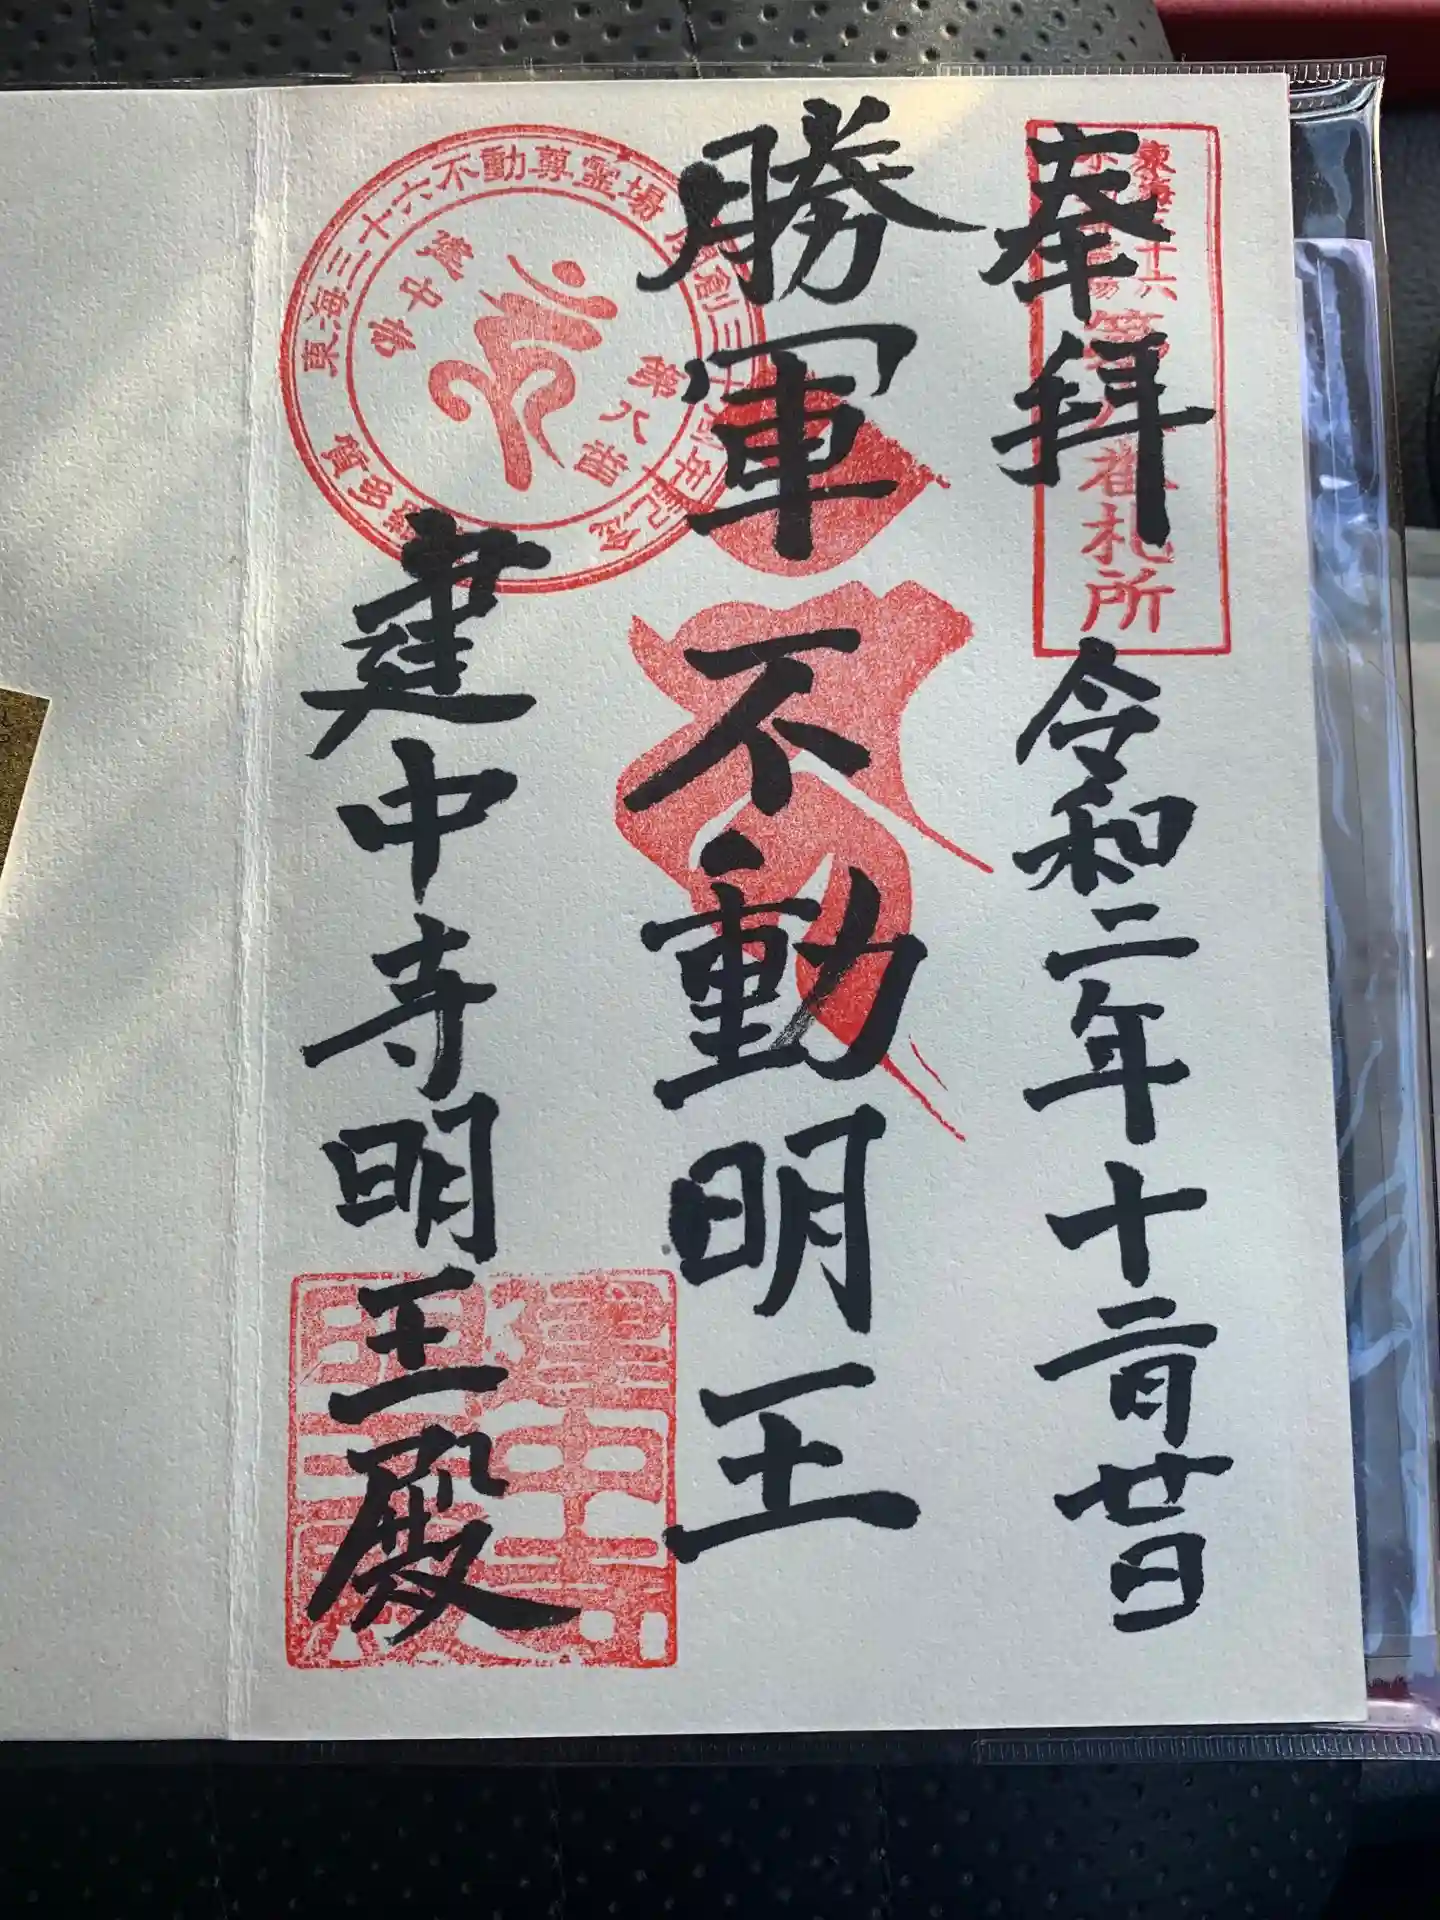 奉拝
令和二年十二月廿日
勝軍不動明王
建中寺明王殿
東海三十六
番札所
東海三十六不動尊霊場
建中寺
第八番